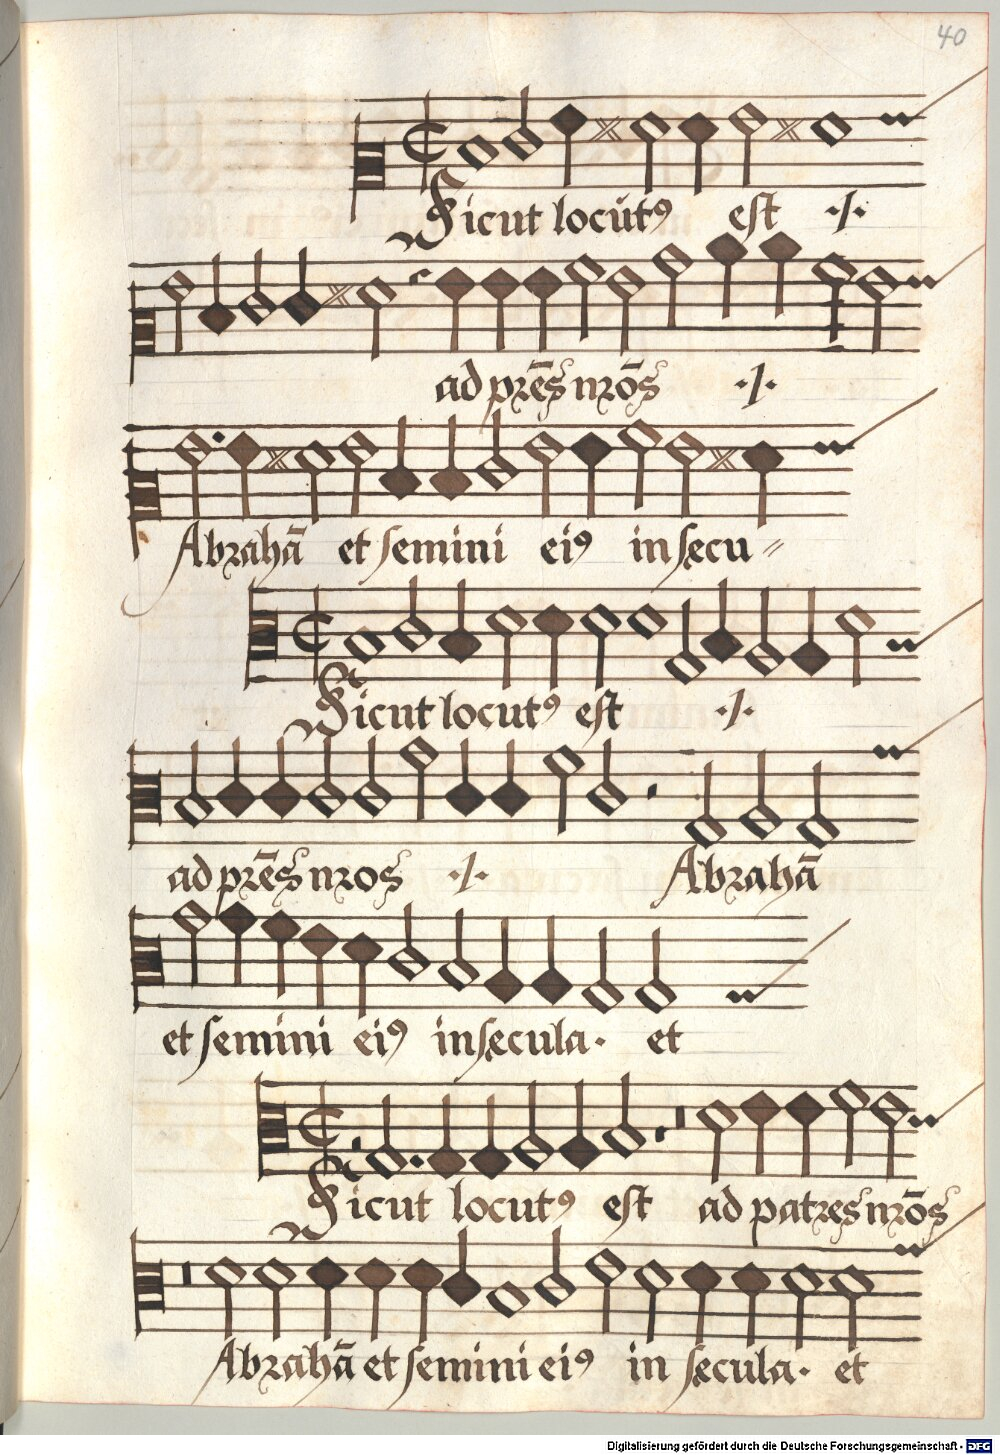 40
Sicut locutꝯ est ·/·
ad pr̄es nr̄os ·/·
Abrahā et semini eiꝯ in secu〃
Sicut locutꝯ est ·/·
ad pr̄es nros ·/· Abrahā
et semini eiꝯ in secula. et
Sicut locutꝯ est ad patres nr̄os
Abrahā et semini eiꝯ in secula. et
Digitalisierung gefördert durch die Deutsche Forschungsgemeinschaft - DFG